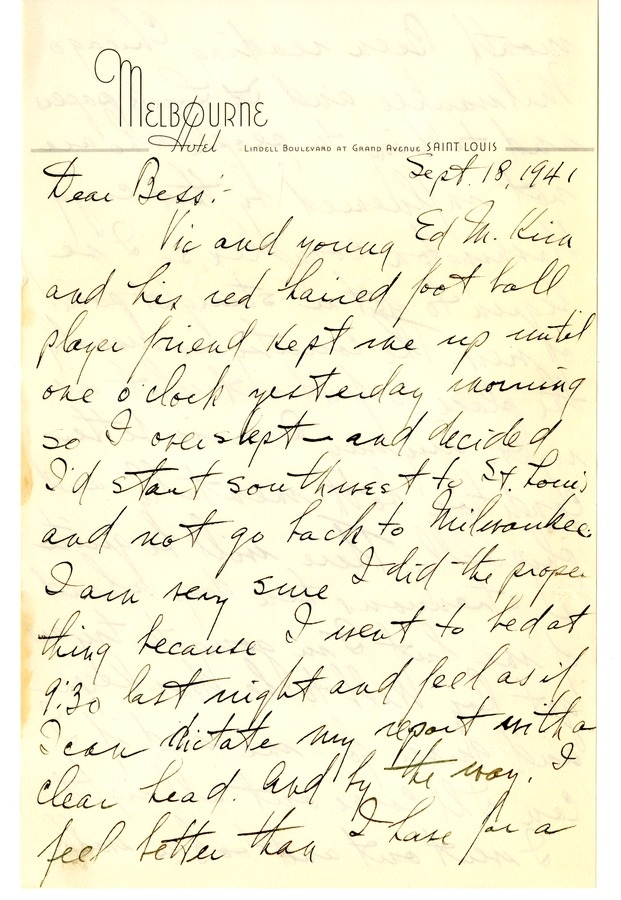 MELBOURNE
Hotel LINDELL BOULEVARD AT GRAND AVENUE SAINT LOUIS
Sept. 18, 1941
Dear Bess:-
Vic and young Ed M.
and his red haired foot ball
player friend kept me up until
one o'clock yesterday morning
so I overslept - and decided
I'd start southwest to St. Louis
and not go back to Milwaukee.
I am very sure I did the proper
thing because I went to bed at
9:30 last night and feel as if
I can dictate my report with a
clear head. And by the way, I
feel better than I have for a